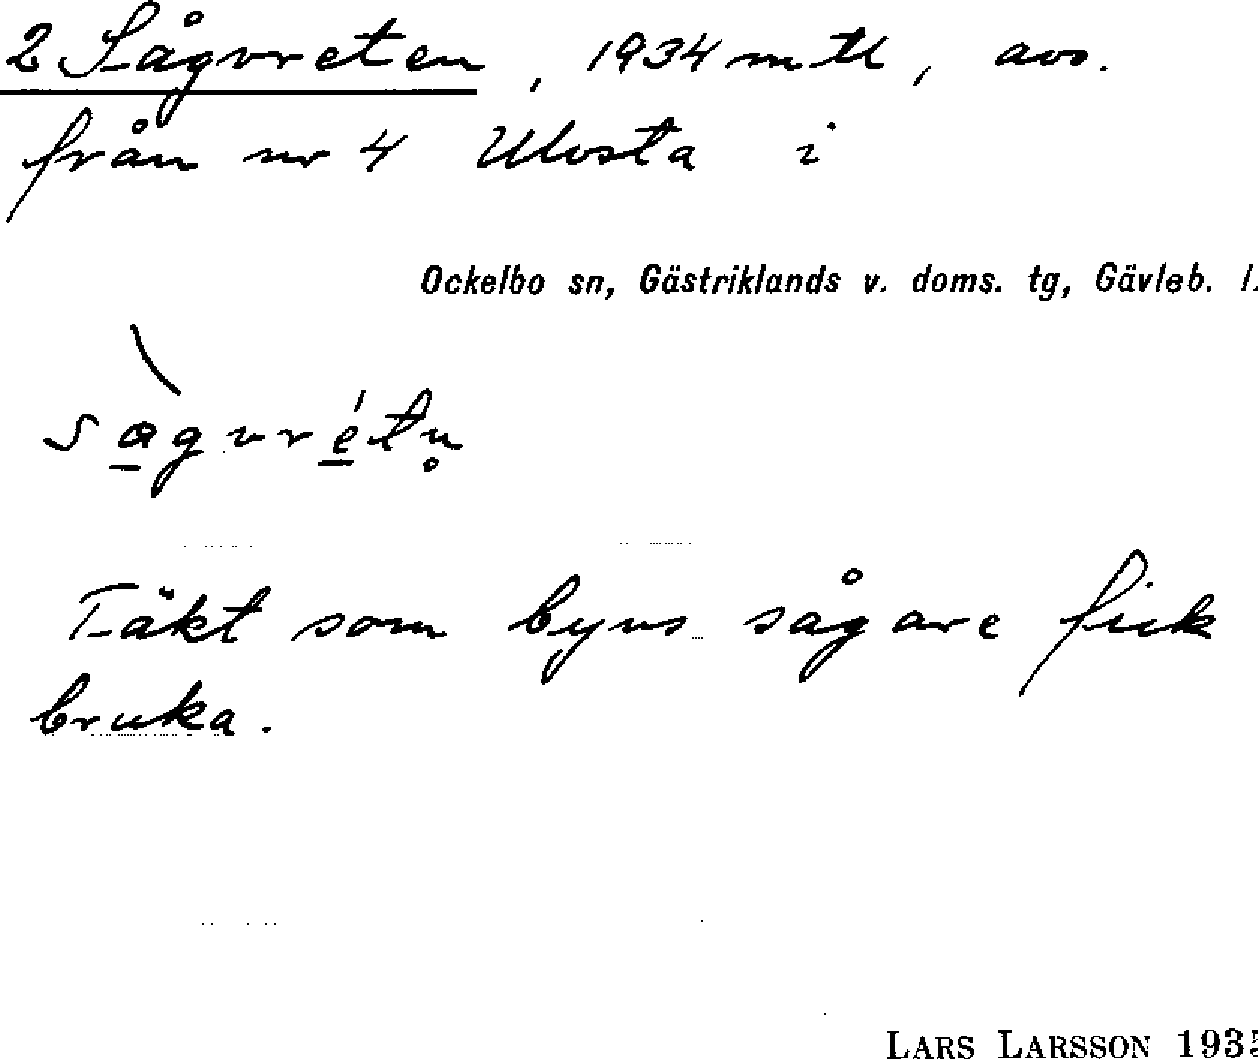 2 Sågvreten, 1934 mtl, avs.
från nr 4 Ulvsta i
Ockelbo sn, Gästriklands v. doms. tg, Gävleb. l.
sa̲gvré̲tn̥
Täkt som byns sågare fick
bruka.
LARS LARSSON 1935